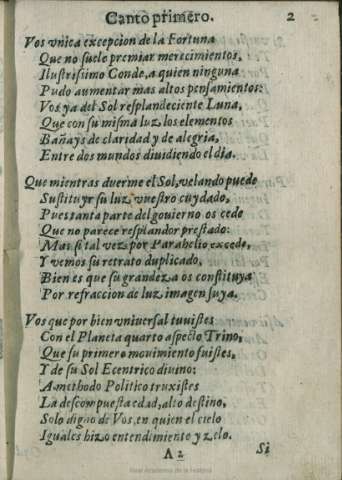 Canto primero. 2
Vos vnica excepcion de la Fortuna
Que no suele premiar merecimientos,
Ilustrissimo Conde, a quien ninguna
Pudo aumentar mas altos pensamientos:
Vos ya del Sol resplandeciente Luna,
Que con su misma luz, los elementos
Bañays de claridad y de alegria,
Entre dos mundos diuidiendo el dia.
Que mientras duerme el Sol, velando puede
Sustituyr su luz vuestro cuydado,
Pues tanta parte del gouierno os cede
Que no parece resplandor prestado:
Mas si tal vez por Parahelio excede,
Y vemos su retrato duplicado,
Bien es que su grandeza os constituya
Por refraccion de luz imagen suya.
Vos que por bien vniuersal tuuistes
Con el Planeta quarto aspecto Trino,
Que su primero mouimiento fuistes,
Y de su Sol Ecentrico diuino:
A methodo Politico truxistes
La descompuesta edad, alto destino,
Solo digno de Vos, en quien el cielo
Iguales hizo entendimiento y zelo.
A 2 Si
Real Academia de la Historia